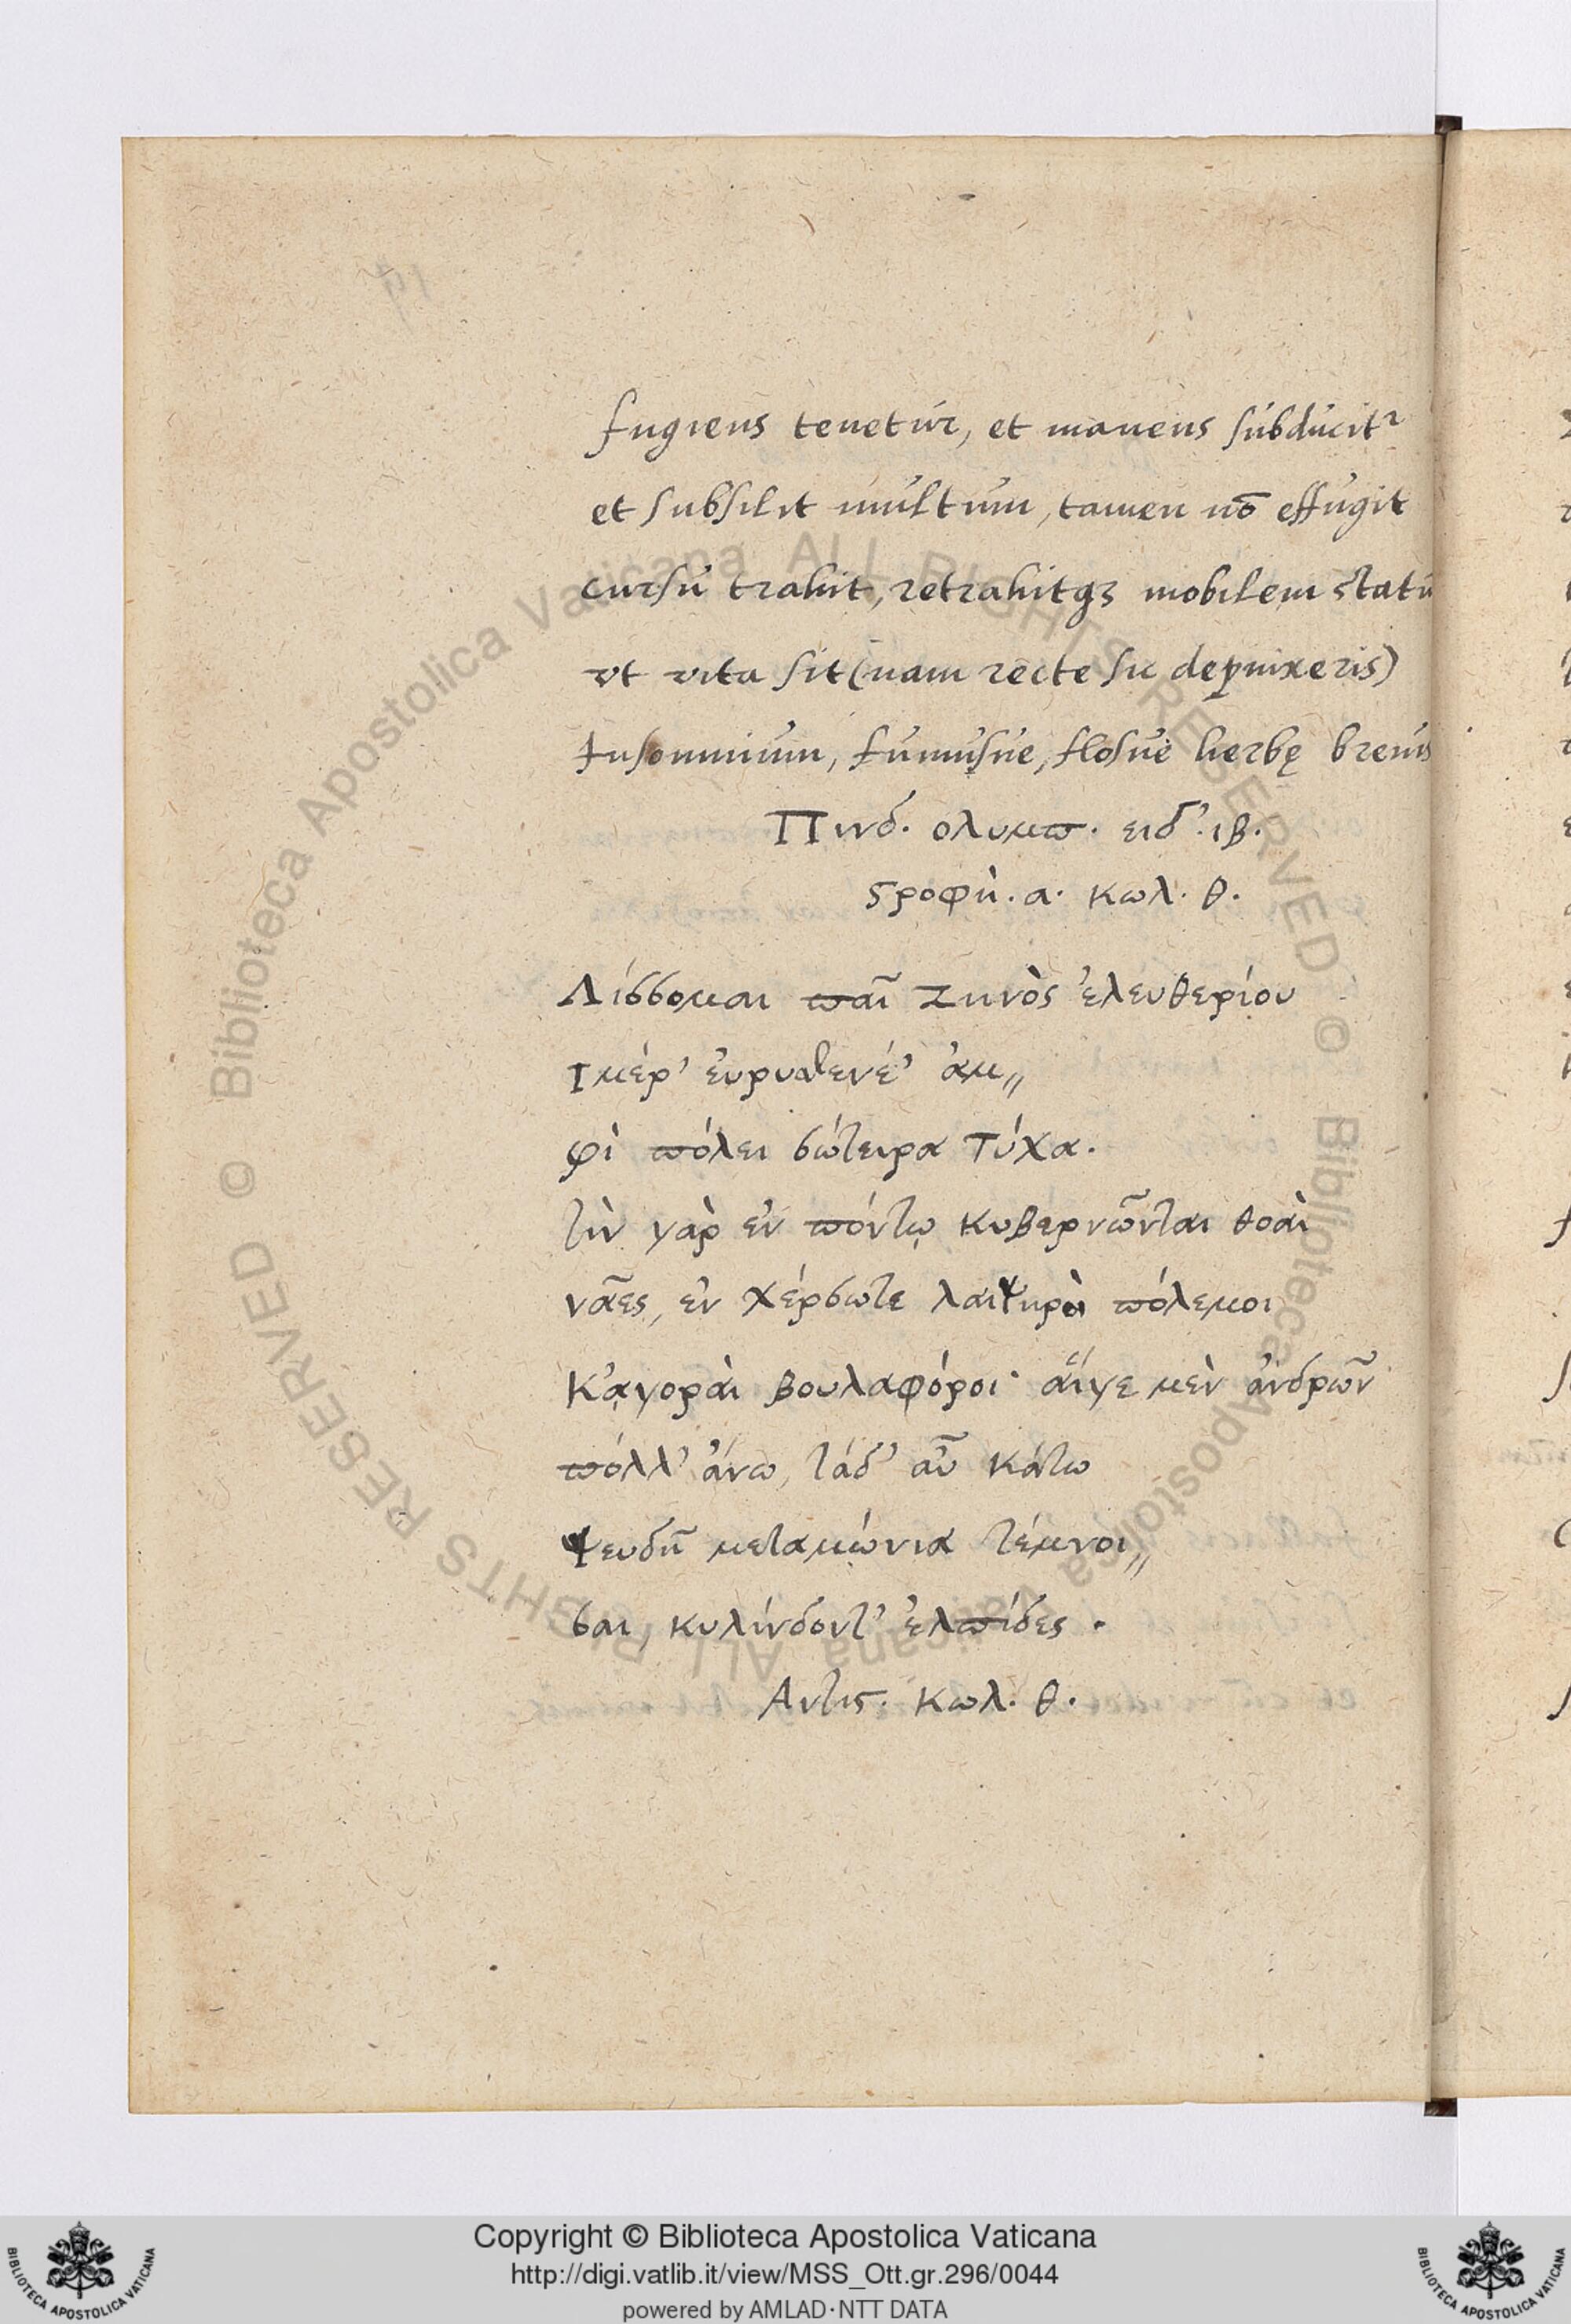 fugiens tenetur, et manens subducitʳ
et subsilit multum, tamen nō effugit
cursu trahit, retrahitqꝫ mobilem statū
vt vita sit (nam recte sic depinxeris)
Insomnium, fumusue, flosue herbę breuis
Πινδ. ολυμπ. ειδ'. ιβ.
ϛροφὴ. α. κωλ. θ.
Λίσσομαι παῖ Ζηνὸς ἐλευθερίου
Ιμέρ' ἐυρυσθενέ' ἀμ〃
φὶ πόλει σώτειρα Τύχα.
τὶν γὰρ ἐν πόντῳ κυβερνῶνται θοαὶ
νᾶες, ἐν χέρσωτε λαιψηροὶ πόλεμοι
Κἀγοραὶ βουλαφόροι· ἅιγε μὲν ἀνδρῶν
πόλλ' ἄνω, τάδ' αὖ κάτω
ψευδῆ μεταμώνια τέμνοι〃
σαι, κυλίνδοντ' ἐλπίδες.
Αντιϛ. κωλ. θ.
Copyright © Biblioteca Apostolica Vaticana
http://digi.vatlib.it/view/MSS_Ott.gr.296/0044
powered by AMLAD·NTT DATA